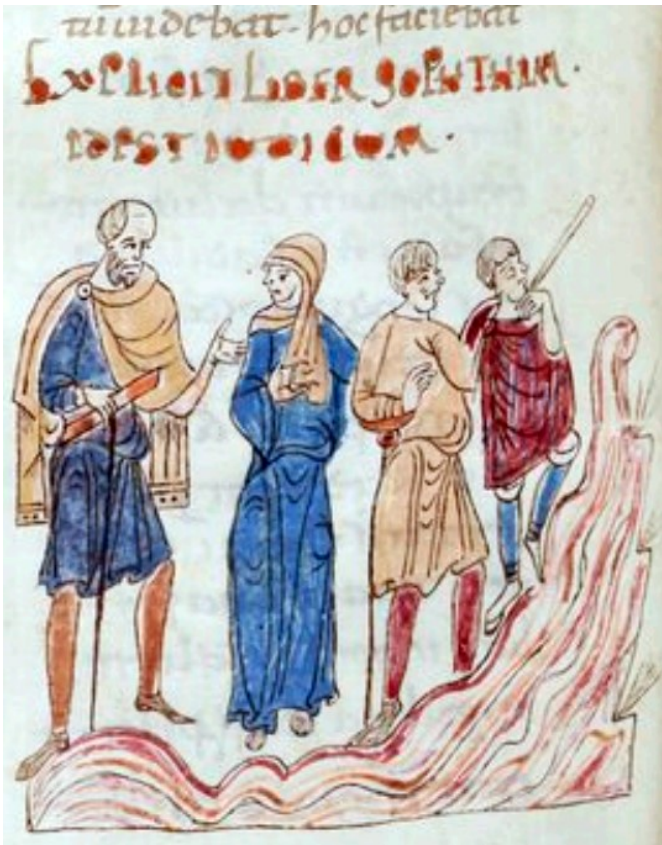 tū uidebat. hoc faciebat
EXPLICIT LIBER SOPHTHIM.
IDEST IUDICUM.